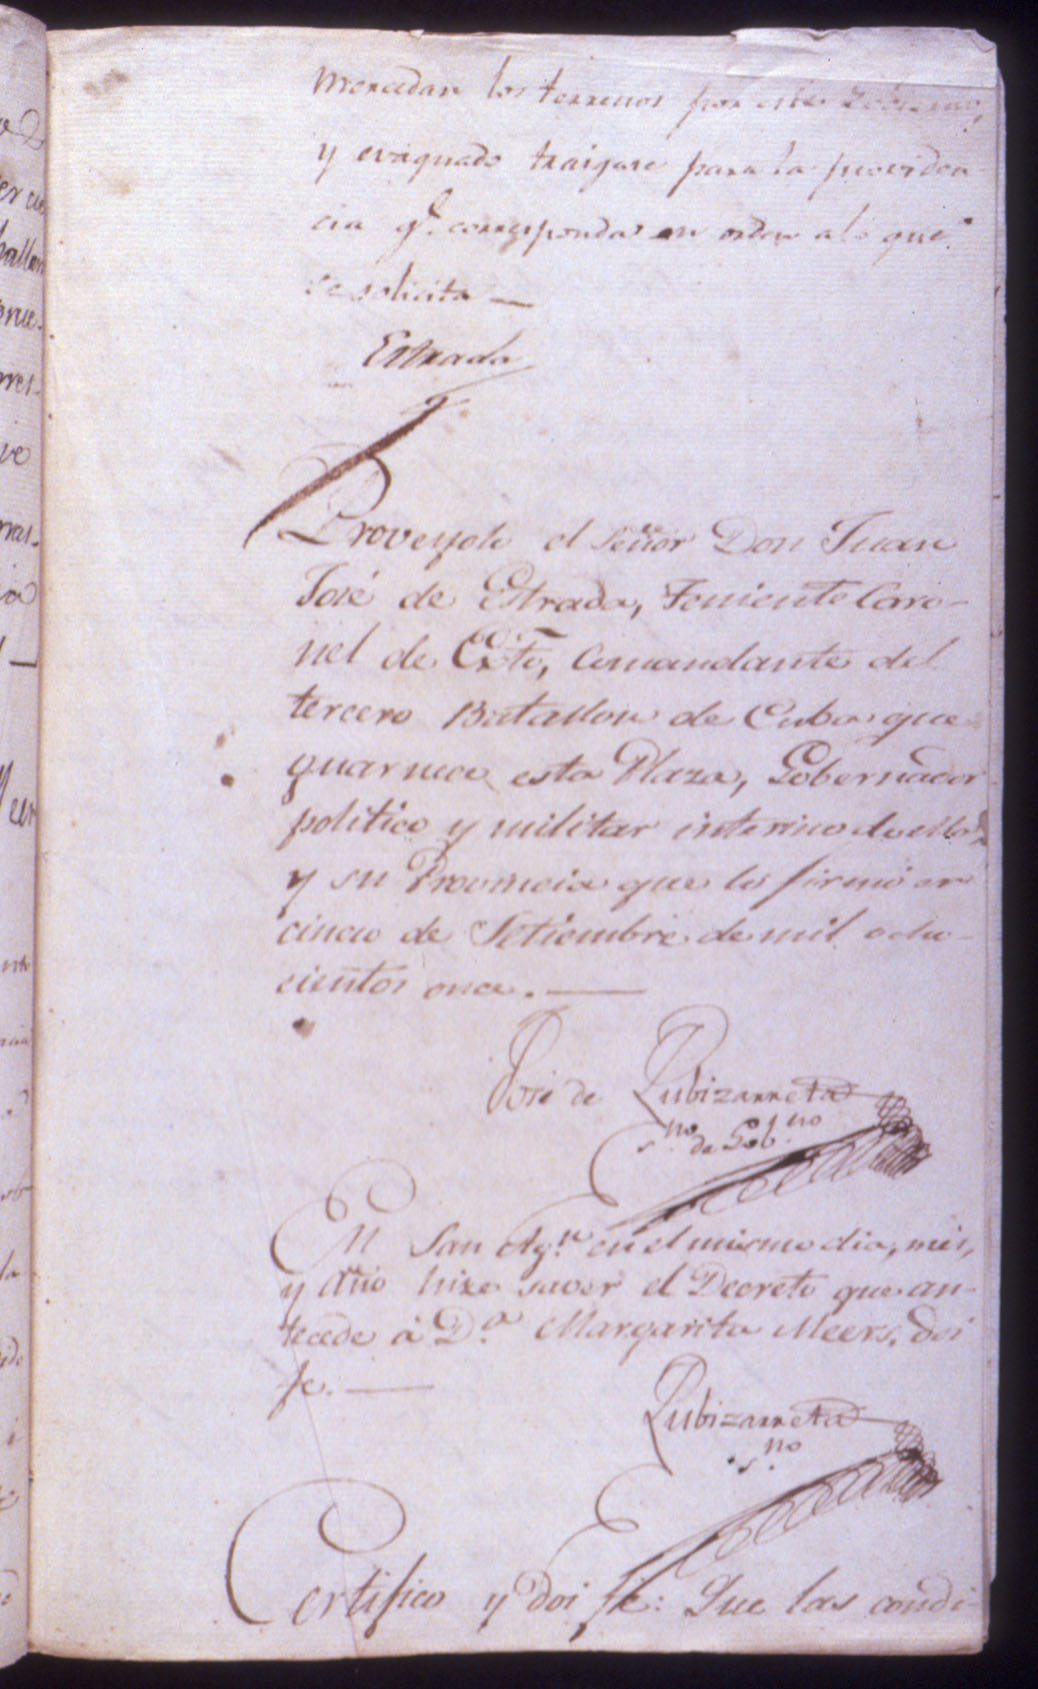 mercedan los terrenos por este
y evaquado traigase para la providen-
cia qe. corresponda en orden a lo que
se solicita —
Estrada
Proveyolo el Señor Don Juan
José de Estrada, Teniente Coro-
nel de Exto, Comandante del
tercero Batallon de Cuba que
guarnece esta Plaza, Gobernador
politico y militar interino de ella
y su Provincia que lo firmó en
cinco de Setiembre de mil ocho-
cientos once. —
José de Zubizarreta
sno. de Gobno
En San Agn. en el mismo dia, mes,
y año hize saver el Decreto que an-
tecede á Da. Margarita Meers. doi
fe. —
Zubizarreta
sno.
Certifico y doi fe: Que las condi-